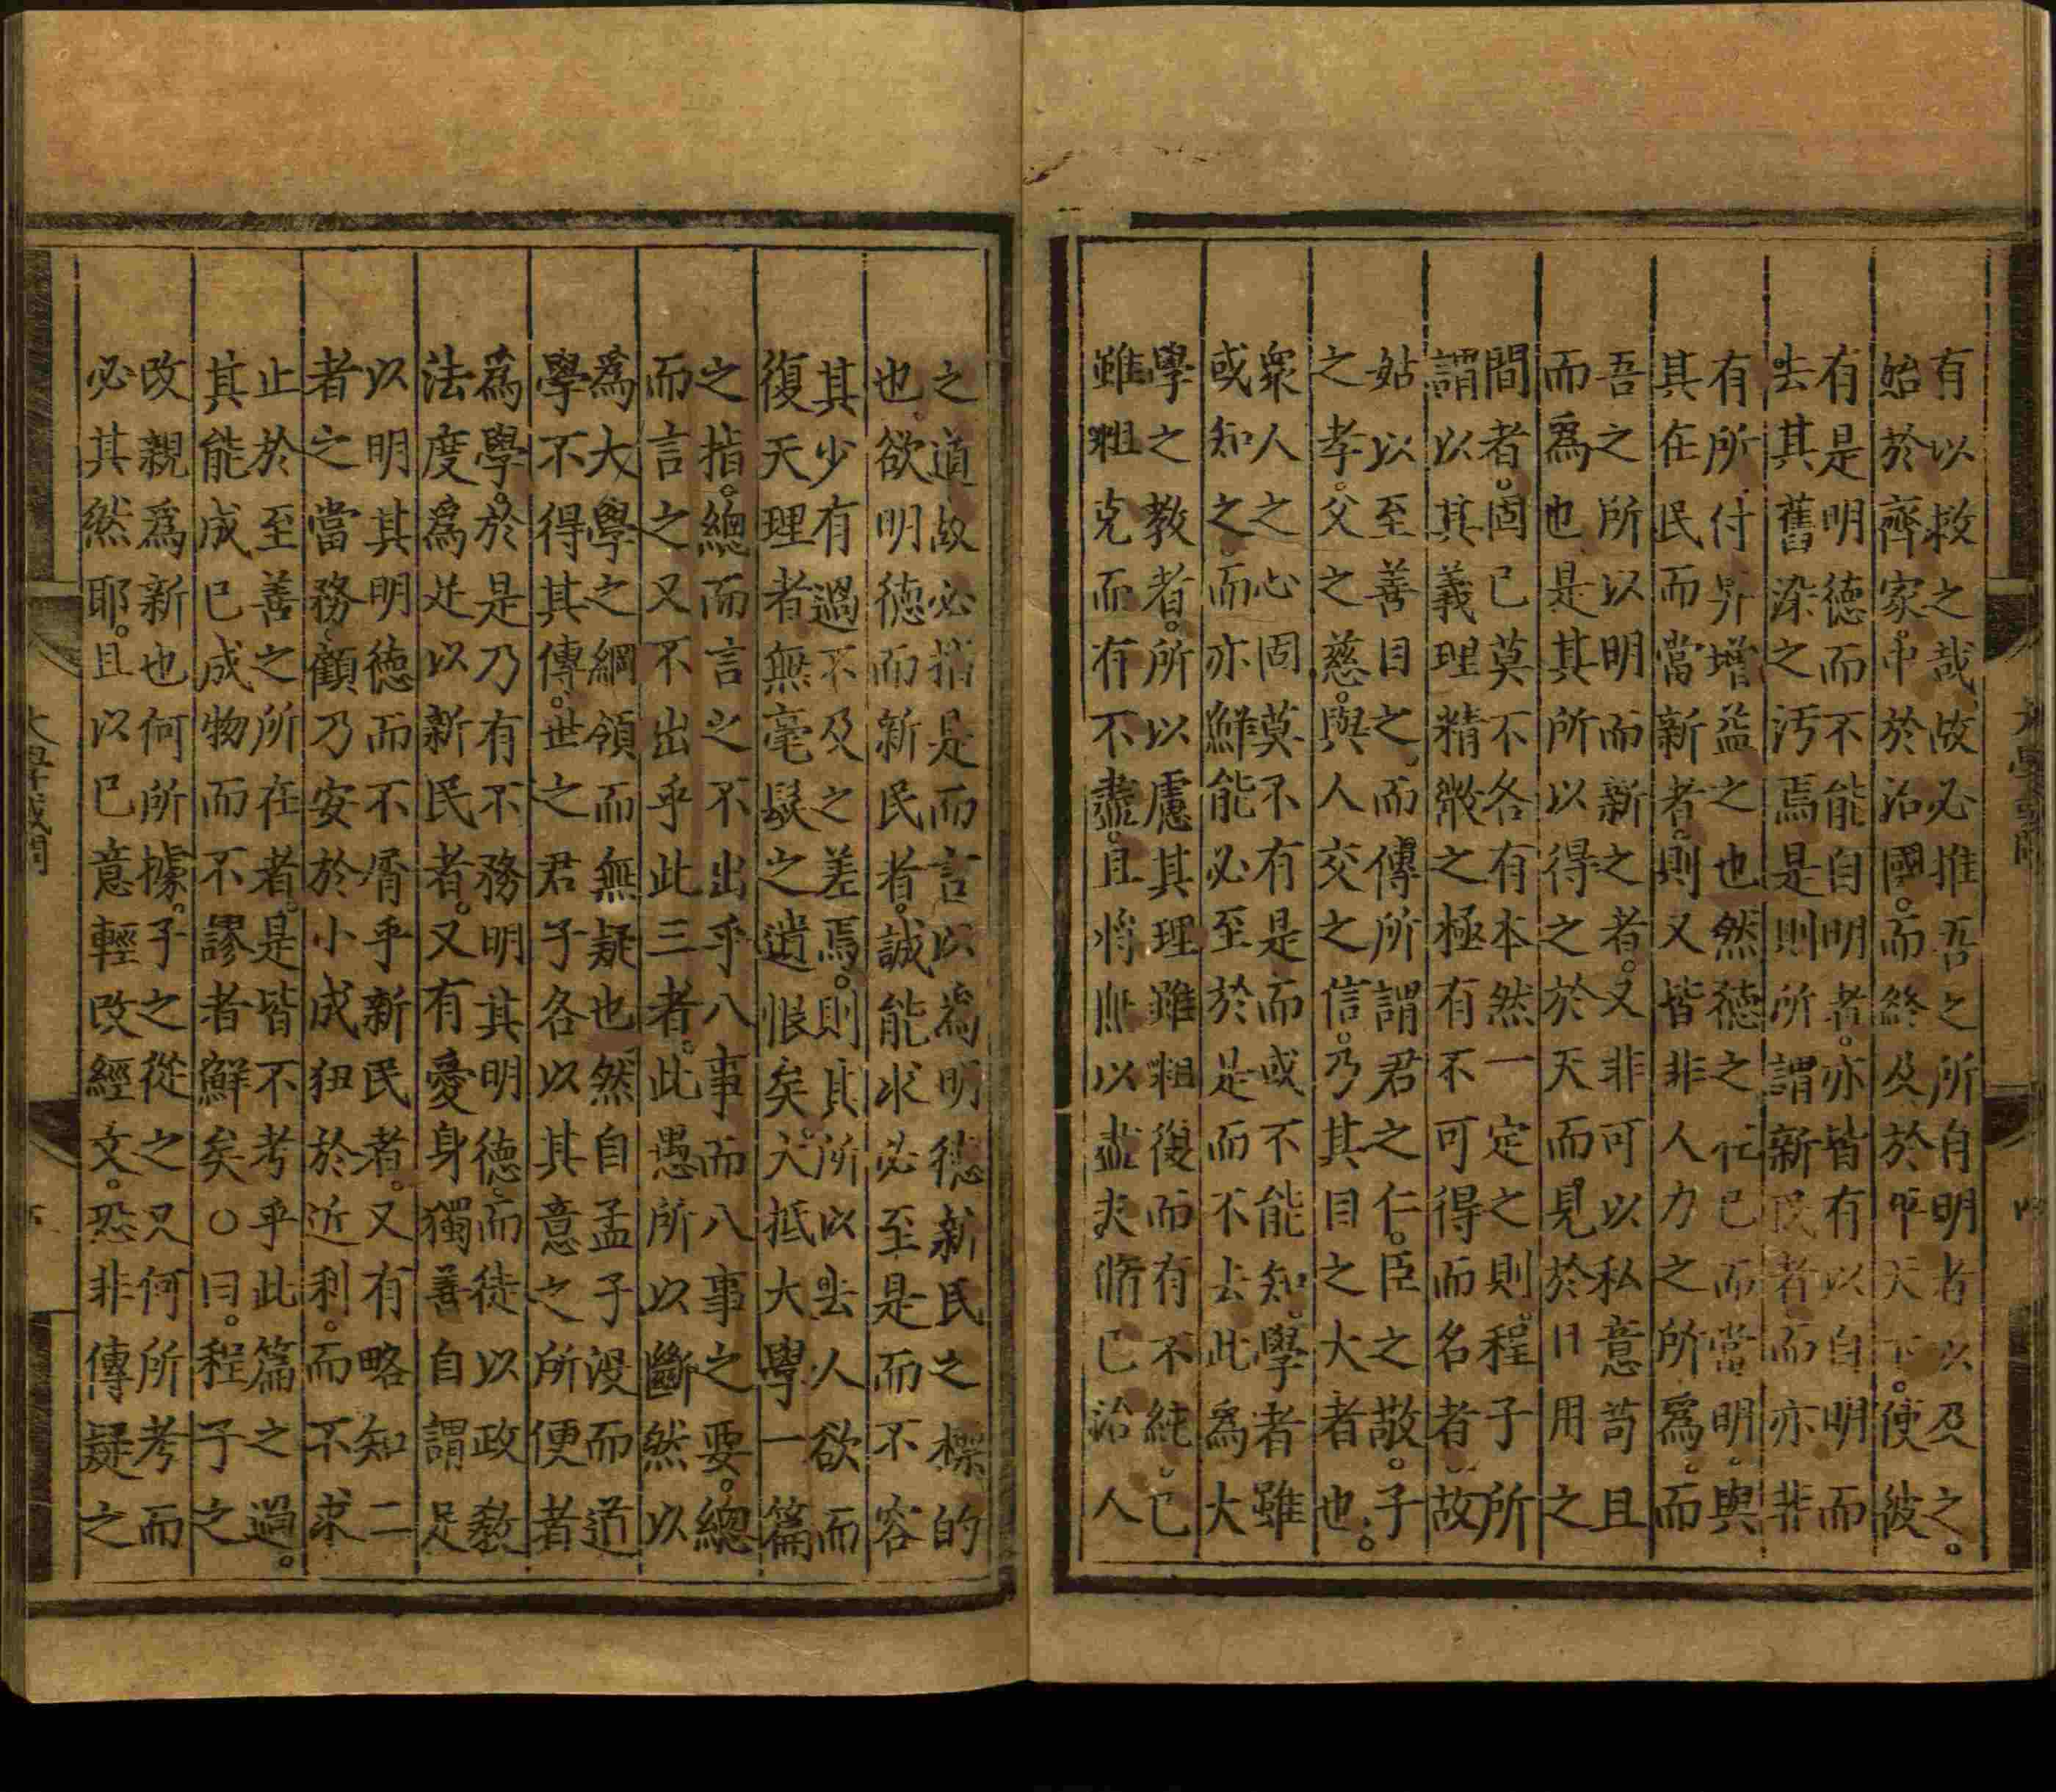 有以救之哉故必推吾之所自明者以及之。
始於齊家。中於治國。而終及於平天下。使彼
有是明德而不能自明者。亦皆有以自明而
去其舊染之汚焉是則所謂新民者而亦非
有所付畀增益之也然德之在己而當明。與
其在民而當新者。則又皆非人力之所爲。而
吾之所以明而新之者。又非可以私意苟且
而爲也是其所以得之於天而見於日用之
間者。固已莫不各有本然一定之則。程子所
謂以其義理精微之極有不可得而名者故
姑以至善目之。而傳所謂君之仁。臣之敬。子
之孝。父之慈。與人交之信。乃其目之大者也。
衆人之心固莫不有是而或不能知。學者雖
或知之。而亦鮮能必至於是而不去此爲大
學之教者。所以慮其理雖粗復而有不純。已
雖粗克而有不盡。且將無以盡夫脩己治人
之道故必指是而言以爲明德新民之標的
也。欲明德而新民者。誠能求必至是而不容
其少有過不及之差焉。則其所以去人欲而
復天理者無毫髮之遺恨矣。大抵大學一篇
之指。總而言之不出乎八事而八事之要。總
而言之又不出乎此三者。此愚所以斷然以
爲大學之綱領而無疑也然自孟子没而道
學不得其傳。世之君子各以其意之所便者
爲學。於是乃有不務明其明德。而徒以政教
法度爲足以新民者。又有愛身獨善自謂足
以明其明德而不屑乎新民者。又有略知二
者之當務。顧乃安於小成狃於近利。而不求
止於至善之所在者。是皆不考乎此篇之過。
其能成己成物而不謬者鮮矣○曰。程子之
改親爲新也何所據。子之從之又何所考而
必其然耶。且以己意輕改經文。恐非傳疑之